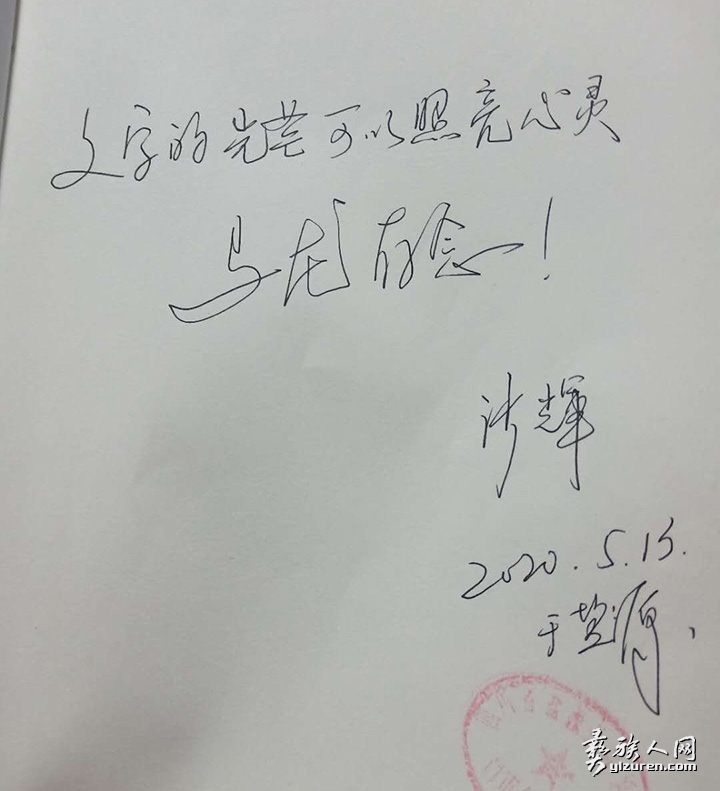 文字的光芒可以照亮心灵
马龙存念！
沙辉
2020.5.15.
于盐源、
彝族人网
yizuren.com